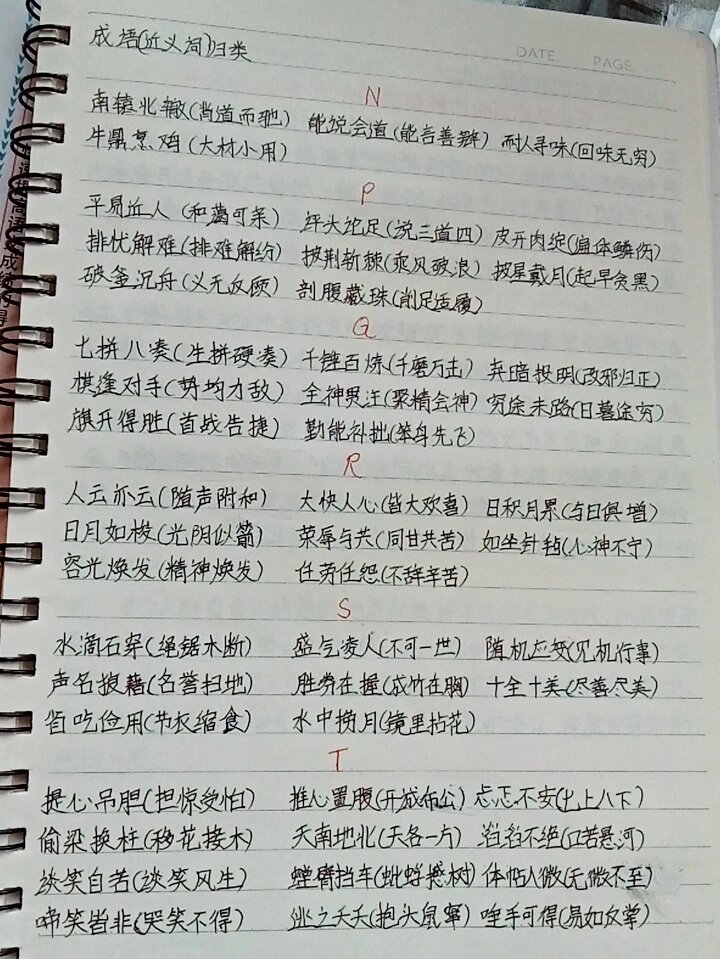 DATE. PAGE.
成语(近义词)归类
N
南辕北辙(背道而驰) 能说会道(能言善辩) 耐人寻味(回味无穷)
牛鼎烹鸡(大材小用)
P
平易近人(和蔼可亲) 评头论足(说三道四) 皮开肉绽(遍体鳞伤)
排忧解难(排难解纷) 披荆斩棘(乘风破浪) 披星戴月(起早贪黑)
破釜沉舟(义无反顾) 剖腹藏珠(削足适履)
Q
七拼八凑(生拼硬凑) 千锤百炼(千磨万击) 弃暗投明(改邪归正)
棋逢对手(势均力敌) 全神贯注(聚精会神) 穷途末路(日暮途穷)
旗开得胜(首战告捷) 勤能补拙(笨鸟先飞)
R
人云亦云(随声附和) 大快人心(皆大欢喜) 日积月累(与日俱增)
日月如梭(光阴似箭) 荣辱与共(同甘共苦) 如坐针毡(心神不宁)
容光焕发(精神焕发) 任劳任怨(不辞辛苦)
S
水滴石穿(绳锯木断) 盛气凌人(不可一世) 随机应变(见机行事)
声名狼藉(名誉扫地) 胜券在握(成竹在胸) 十全十美(尽善尽美)
省吃俭用(节衣缩食) 水中捞月(镜里拈花)
T
提心吊胆(担惊受怕) 推心置腹(开诚布公) 忐忑不安(七上八下)
偷梁换柱(移花接木) 天南地北(天各一方) 滔滔不绝(口若悬河)
谈笑自若(谈笑风生) 螳臂挡车(蚍蜉撼树) 体贴入微(无微不至)
啼笑皆非(哭笑不得) 逃之夭夭(抱头鼠窜) 唾手可得(易如反掌)